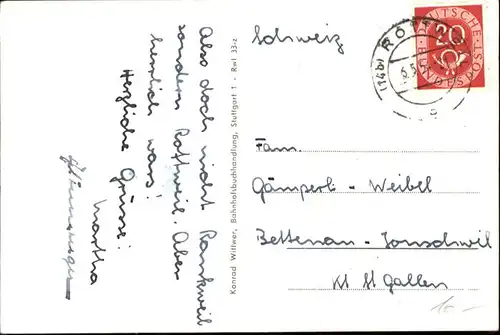 Also doch nicht Rankweil
sondern Rottweil. Aber
herrlich wars!
Herzliche Grüsse:
Martha
Konrad Wittwer, Bahnhofsbuchhandlung, Stuttgart 1 - Rwl 33-z
Schweiz
(14b) ROTT
DEUTSCHE BUNDESPOST
20
Fam.
Gämperli - Weibel
Bettenau - Jonschwil
Kt St Gallen
10.-